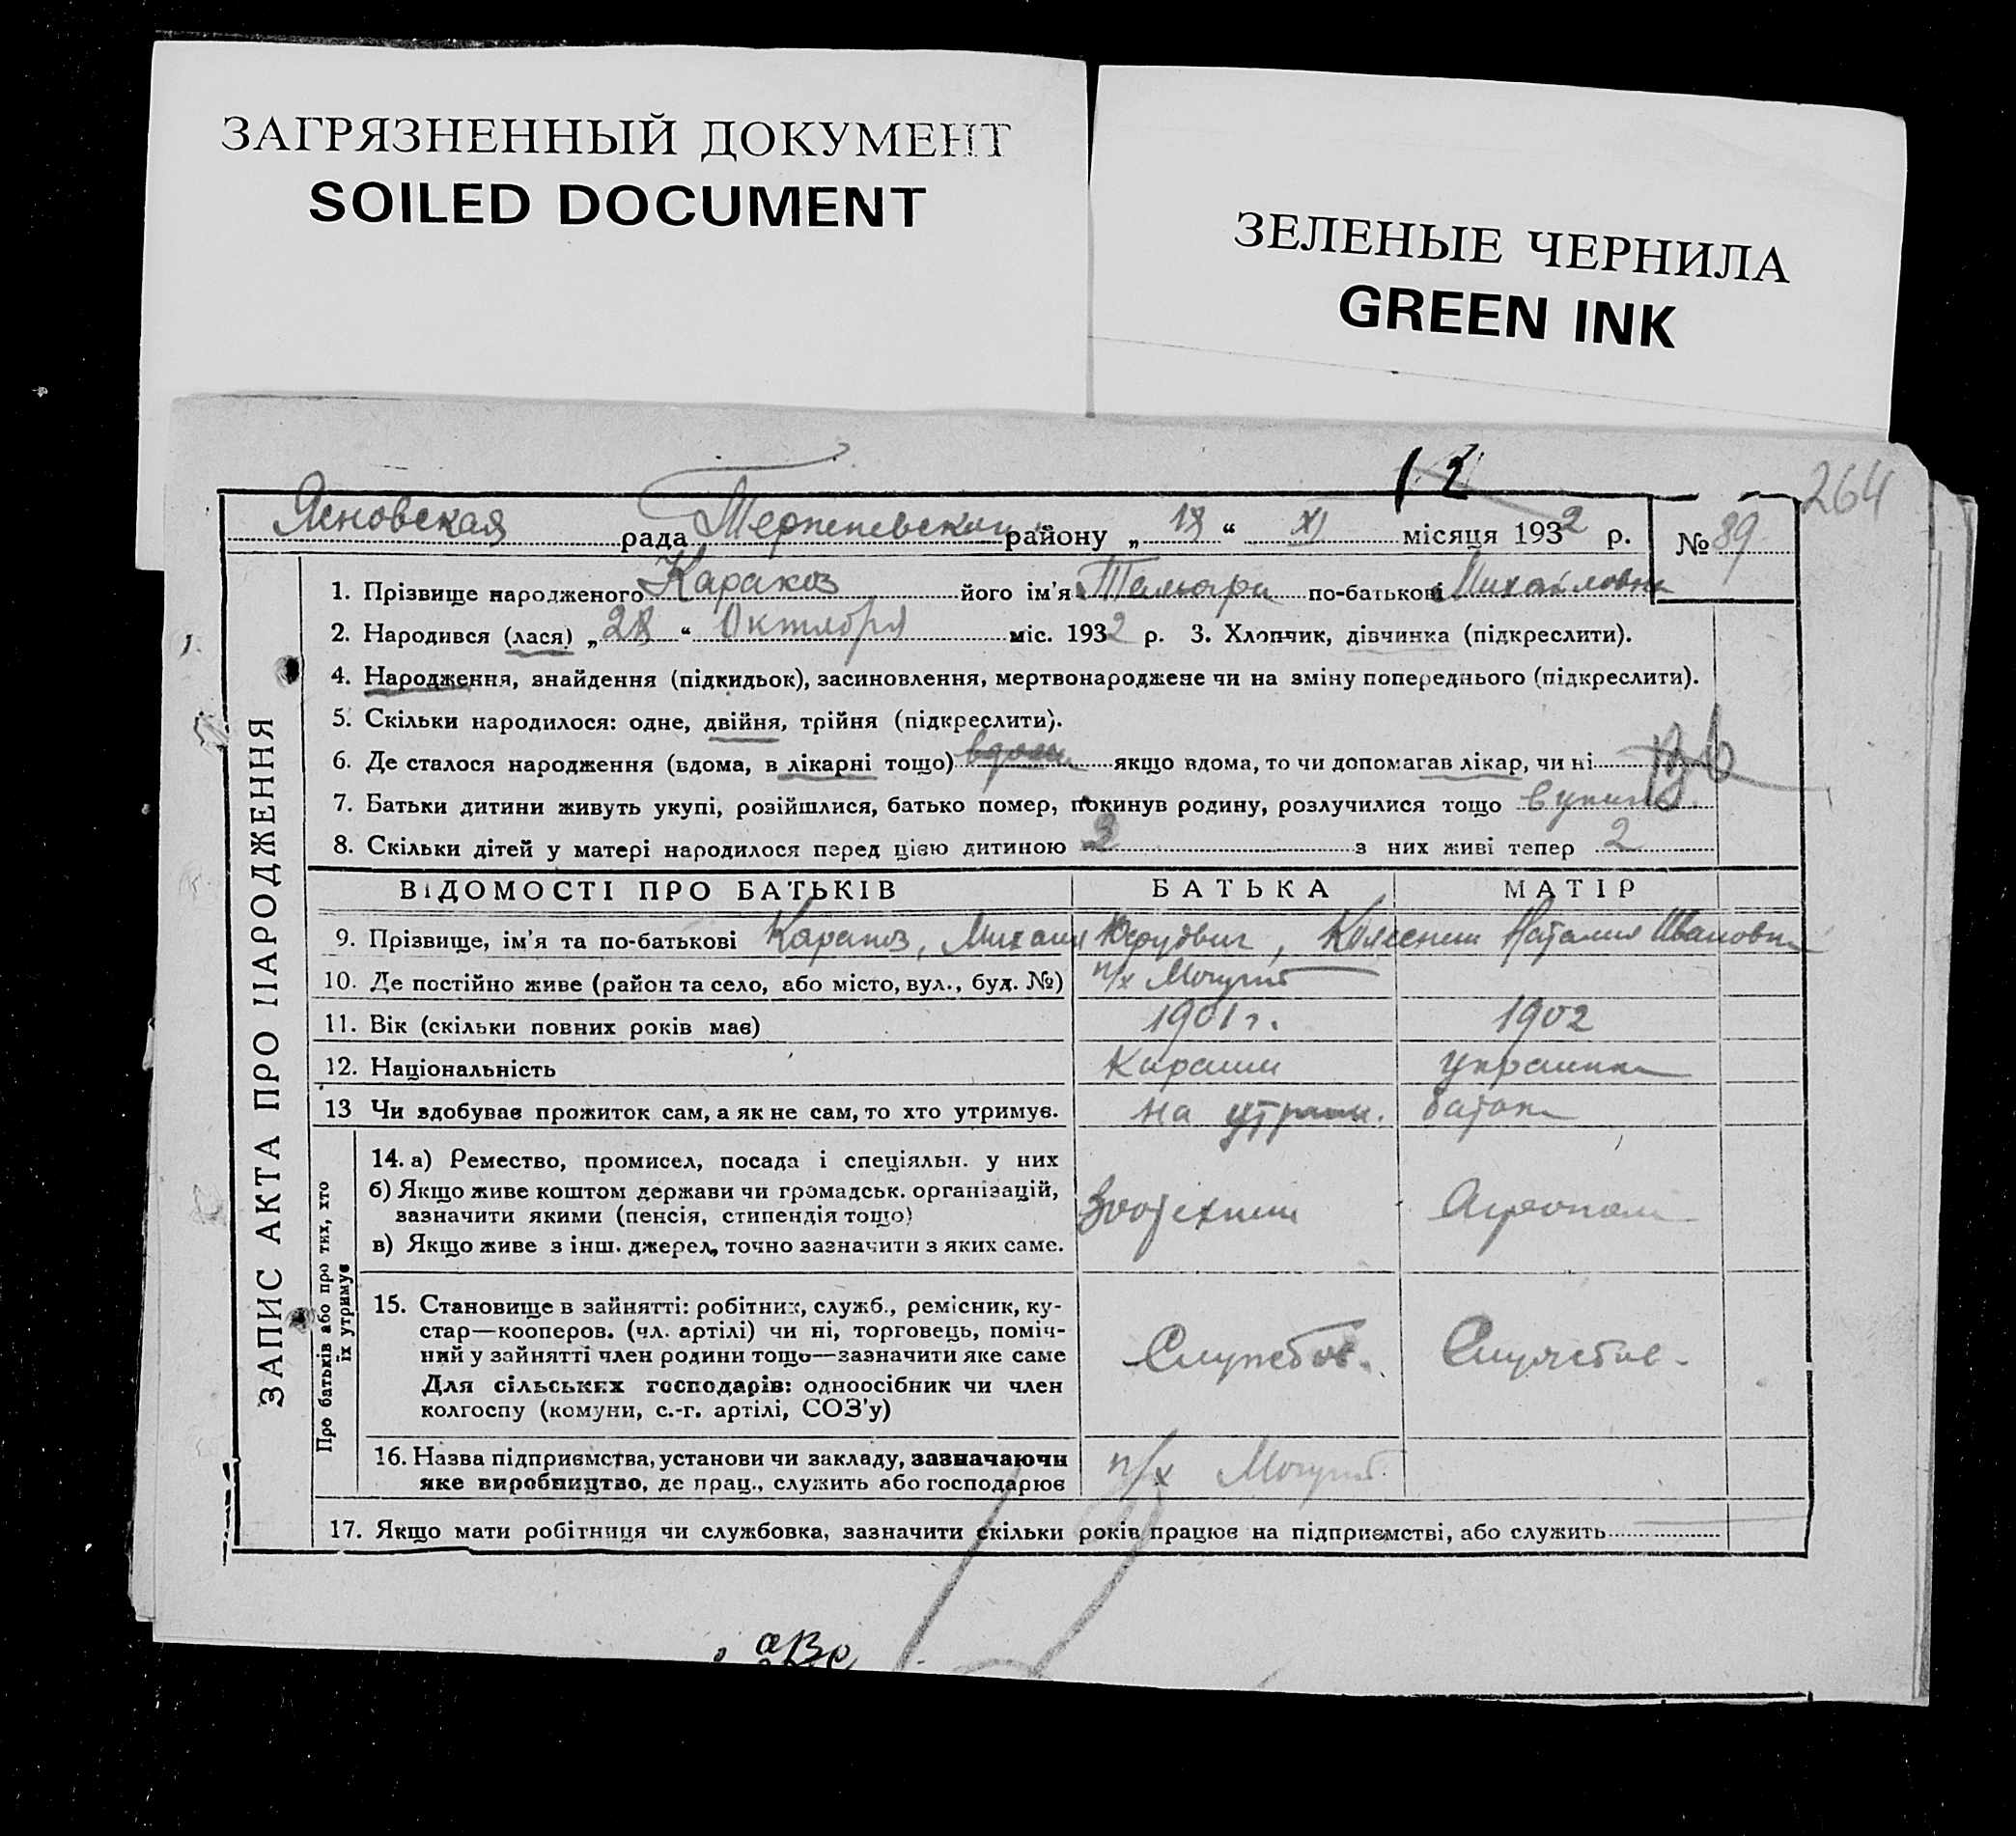 ЗАГРЯЗНЕННЫЙ ДОКУМЕНТ
SOILED DOCUMENT
ЗЕЛЕНЫЕ ЧЕРНИЛА
GREEN INK
12
264
Ясновская рада району „18“ XI місяця 1932 р. № 89
1. Прізвище народженого Каракоз його ім'я Тамара по-батькові Михайловна
2. Народився (лася) „28“ Октября міс. 1932 р. 3. Хлопчик, дівчинка (підкреслити).
4. Народження, знайдення (підкидьок), засиновлення, мертвонароджене чи на зміну попереднього (підкреслити).
5. Скільки народилося: одне, двійня, трійня (підкреслити).
6. Де сталося народження (вдома, в лікарні тощо) вдома якщо вдома, то чи допомагав лікар, чи ні
7. Батьки дитини живуть укупі, розійшлися, батько помер, покинув родину, розлучилися тощо вкупі
8. Скільки дітей у матері народилося перед цією дитиною 3 з них живі тепер 2
ЗАПИС АКТА ПРО НАРОДЖЕННЯ
ВІДОМОСТІ ПРО БАТЬКІВ БАТЬКА МАТІР
9. Прізвище, ім'я та по-батькові Каракоз, Михаил Наталия Ивановна
10. Де постійно живе (район та село, або місто, вул., буд. №) п/х
11. Вік (скільки повних років має) 1901 г. 1902
12. Національність Караим украинка
13 Чи здобуває прожиток сам, а як не сам, то хто утримує. на утрим. батька
Про батьків або про тих, хто
їх утримує
14. а) Ремество, промисел, посада і спеціяльн. у них
б) Якщо живе коштом держави чи громадськ. організацій,
зазначити якими (пенсія, стипендія тощо)
в) Якщо живе з інш. джерел, точно зазначити з яких саме.
Зоотехник Агроном
15. Становище в зайнятті: робітник, служб., ремісник, ку-
стар—кооперов. (чл. артілі) чи ні, торговець, поміч-
ний у зайнятті член родини тощо—зазначити яке саме
Для сільських господарів: одноосібник чи член
колгоспу (комуни, с.-г. артілі, СОЗ'у)
Службов. Службов.
16. Назва підприємства, установи чи закладу, зазначаючи
яке виробництво, де прац., служить або господарює
п/х
17. Якщо мати робітниця чи службовка, зазначити скільки років працює на підприємстві, або служить